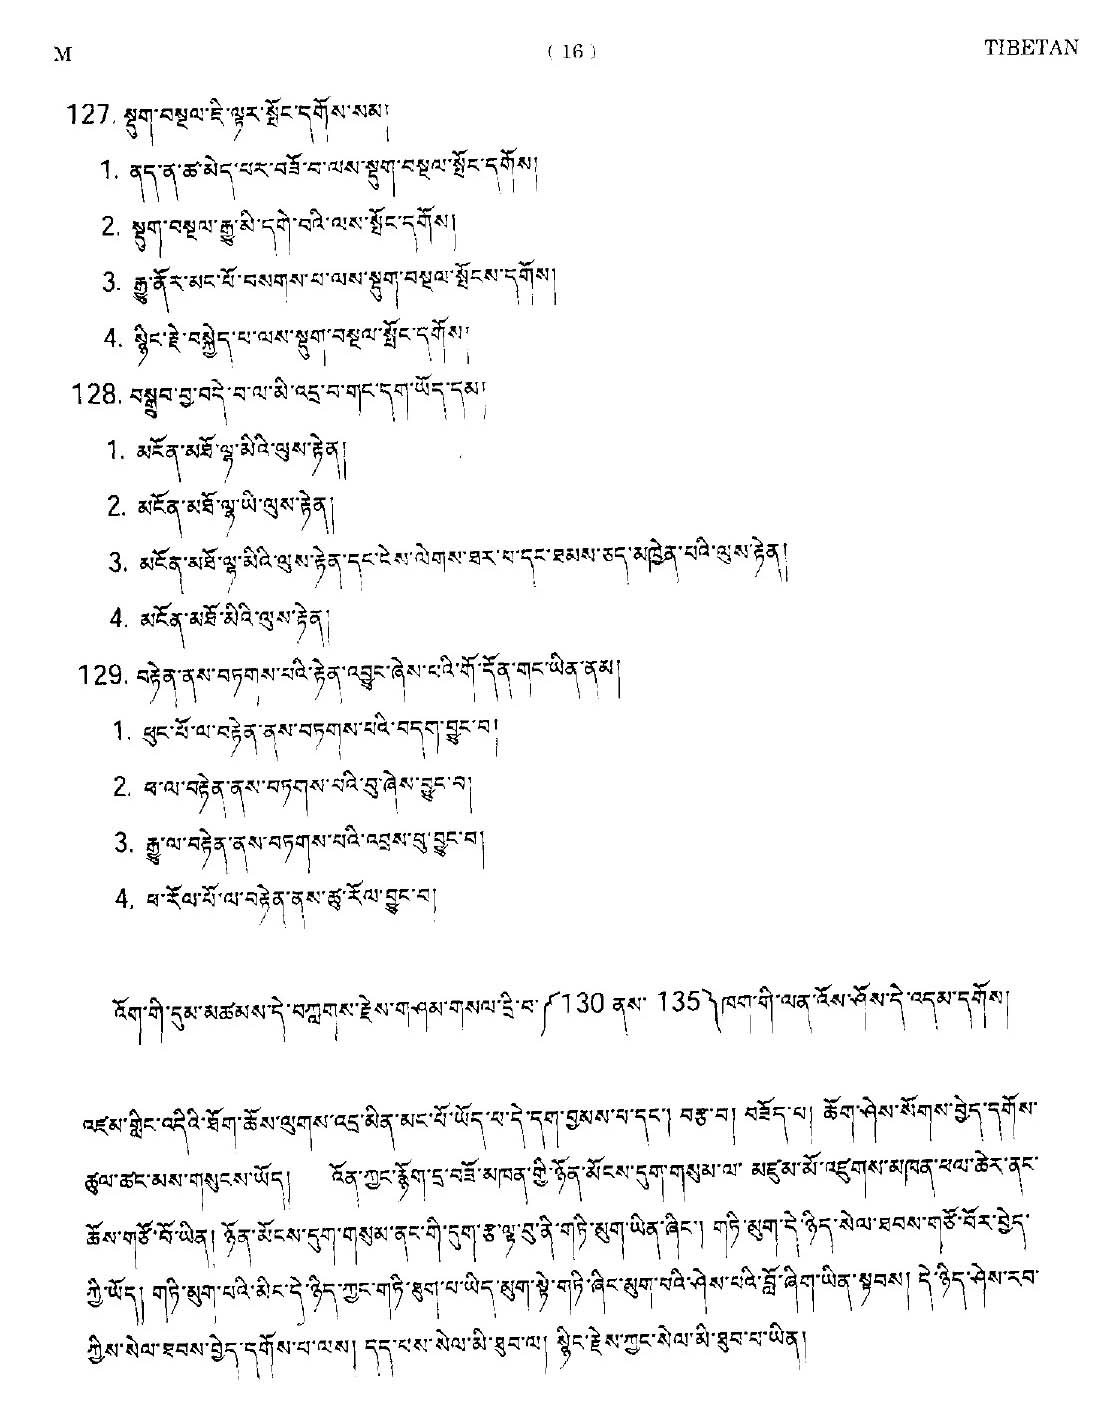 M
( 16 )
TIBETAN
127. སྡུག་བསྔལ་ཇི་ལྟར་སྤོང་དགོས་སམ།
1. ནད་ན་ཚ་མེད་པར་བཟོ་བ་ལས་སྡུག་བསྔལ་སྤོང་དགོས།
2. སྡུག་བསྔལ་རྒྱུ་མི་དགེ་བའི་ལས་སྤོང་དགོས།
3. རྒྱུ་ནོར་མང་པོ་བསགས་པ་ལས་སྡུག་བསྔལ་སྤོངས་དགོས།
4. སྙིང་རྗེ་བསྐྱེད་པ་ལས་སྡུག་བསྔལ་སྤོང་དགོས།
128. བསྒྲུབ་བྱ་བདེ་བ་ལ་མི་འདྲ་བ་གང་དག་ཡོད་དམ།
1. མངོན་མཐོ་ལྷ་མིའི་ལུས་རྟེན།
2. མངོན་མཐོ་ལྷ་ཡི་ལུས་རྟེན།
3. མངོན་མཐོ་ལྷ་མིའི་ལུས་རྟེན་དང་ངེས་ལེགས་ཐར་པ་དང་ཐམས་ཅད་མཁྱེན་པའི་ལུས་རྟེན།
4. མངོན་མཐོ་མིའི་ལུས་རྟེན།
129. བརྟེན་ནས་བཏགས་པའི་རྟེན་འབྱུང་ཞེས་པའི་གོ་དོན་གང་ཡིན་ནམ།
1. ཕུང་པོ་ལ་བརྟེན་ནས་བཏགས་པའི་བདག་བྱུང་བ།
2. ཕ་ལ་བརྟེན་ནས་བཏགས་པའི་བུ་ཞེས་བྱུང་བ།
3. རྒྱུ་ལ་བརྟེན་ནས་བཏགས་པའི་འབྲས་བུ་བྱུང་བ།
4. ཕ་རོལ་པོ་ལ་བརྟེན་ནས་ཚུ་རོལ་བྱུང་བ།
འོག་གི་དུམ་མཚམས་དེ་བཀླགས་རྗེས་གཤམ་གསལ་དྲི་བ་ (130 ནས་ 135) ཁག་གི་ལན་འོས་ཤོས་དེ་འདམ་དགོས།
འཛམ་གླིང་འདིའི་ཐོག་ཆོས་ལུགས་འདྲ་མིན་མང་པོ་ཡོད་པ་དེ་དག་བྱམས་པ་དང་། བརྩ་བ། བཟོད་པ། ཆོག་ཤེས་སོགས་བྱེད་དགོས་
ཚུལ་ཚང་མས་གསུངས་ཡོད། འོན་ཀྱང་རྙོག་དྲ་བཟོ་མཁན་གྱི་ཉོན་མོངས་དུག་གསུམ་ལ་ མཛུམ་མོ་འཛུགས་མཁན་ཕལ་ཆེར་ནང་
ཆོས་གཙོ་བོ་ཡིན། ཉོན་མོངས་དུག་གསུམ་ནང་གི་དུག་རྩ་ལྟ་བུ་ནི་གཏི་མུག་ཡིན་ཞིང་། གཏི་མུག་དེ་ཉིད་སེལ་ཐབས་གཙོ་བོར་བྱེད་
ཀྱི་ཡོད། གཏི་མུག་པའི་མིང་དེ་ཉིད་ཀྱང་གཏི་ཐུག་པ་ཡིད་མུག་སྟེ་གཏི་ཞིང་མུག་པའི་ཤེས་པའི་བློ་ཞིག་ཡིན་སྟབས། དེ་ཉིད་ཤེས་རབ་
ཀྱིས་སེལ་ཐབས་བྱེད་དགོས་པ་ལས། དད་པས་སེལ་མི་ཐུབ་ལ། སྙིང་རྗེས་ཀྱང་སེལ་མི་ཐུབ་པ་ཡིན།